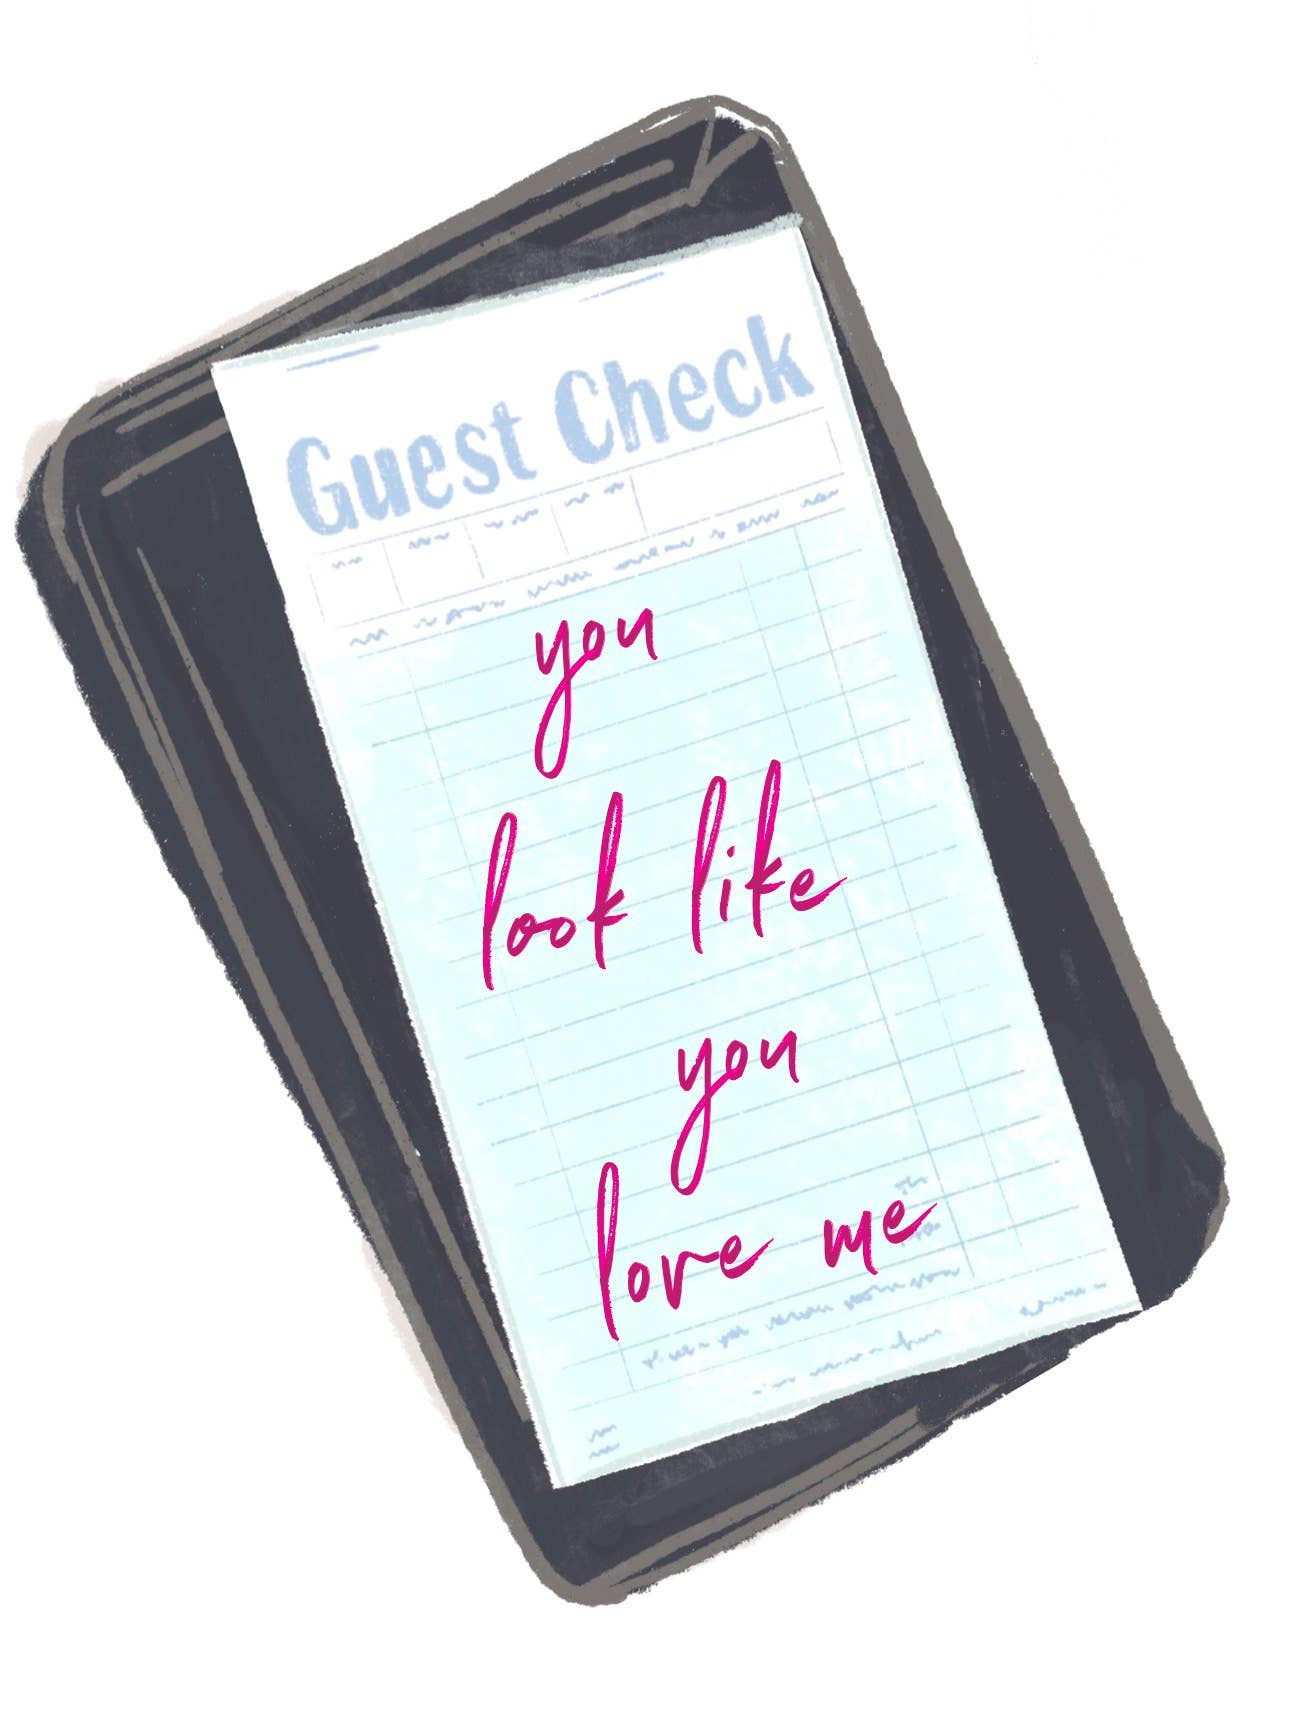 Guest Check
you
look like
you
love me